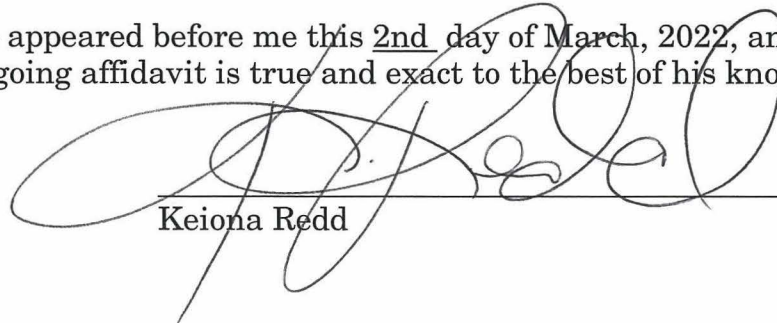 appeared before me this 2nd day of March, 2022, an
going affidavit is true and exact to the best of his kno
Keiona Redd